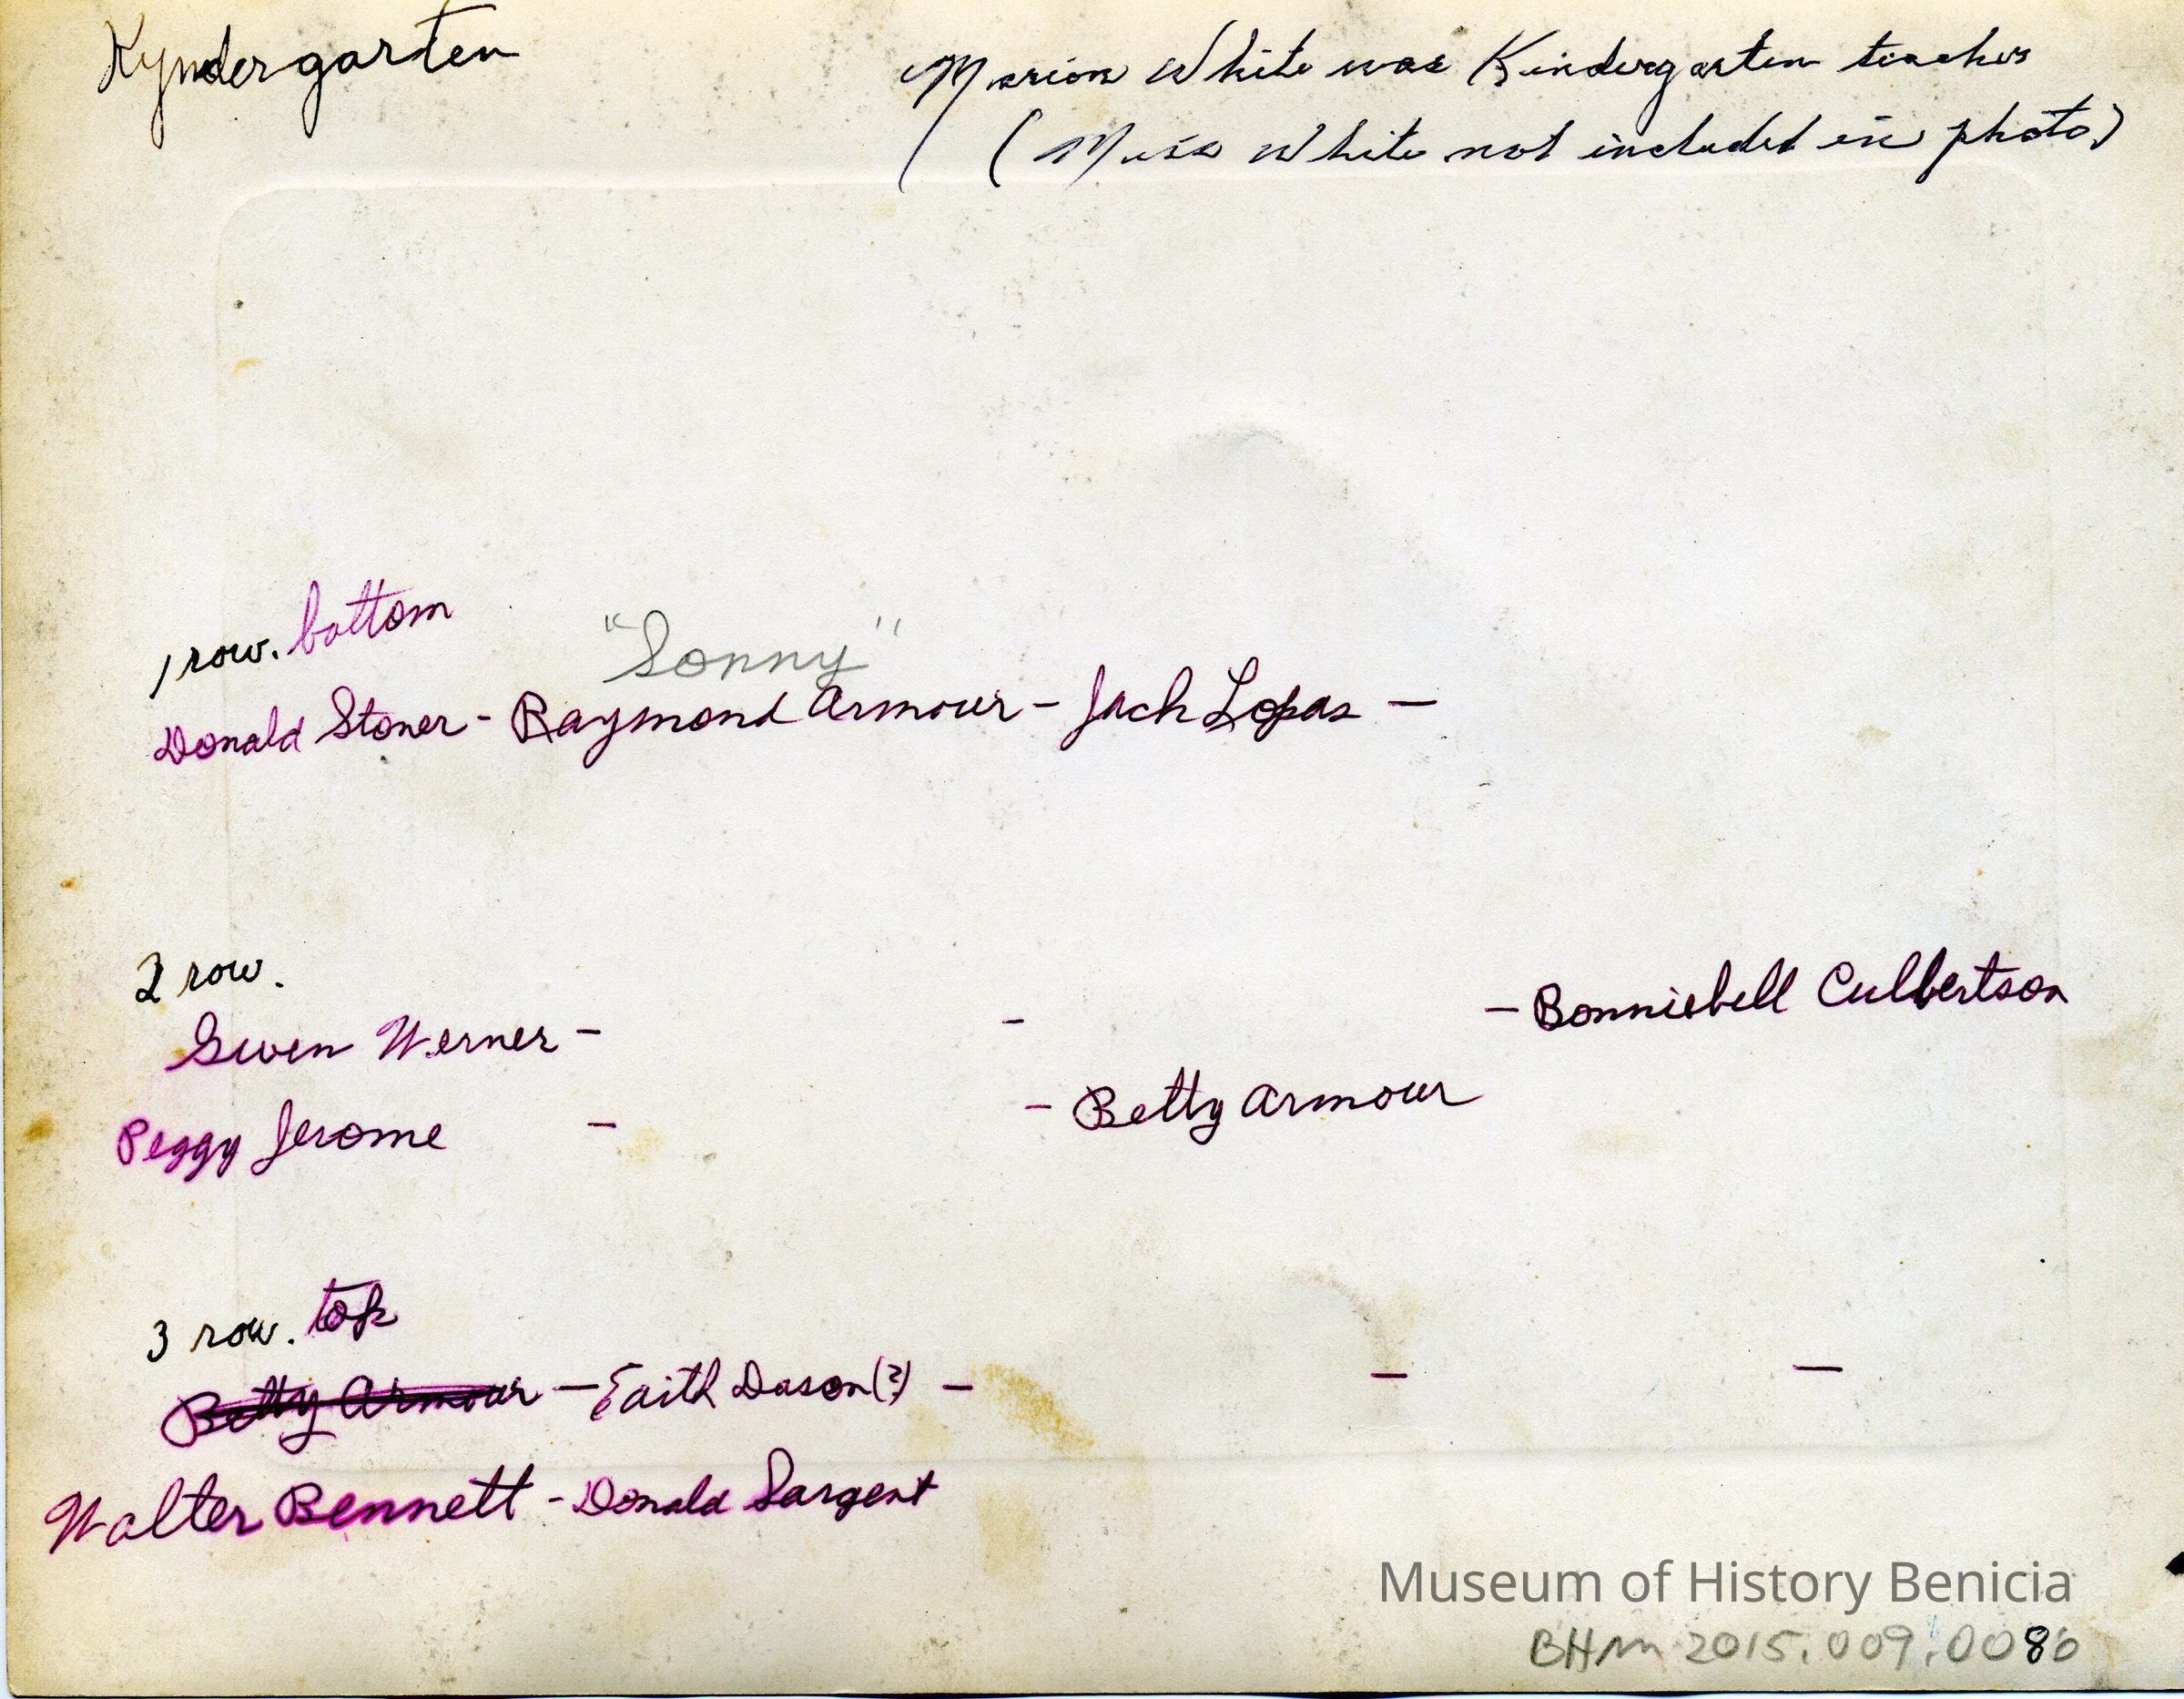 Kyndergarten
Marion White was Kindergarten teacher
(Miss White not included in photo)
1 row. bottom
"Sonny"
Donald Stoner - Raymond Armour - Jack Lopas -
2 row.
Gwen Werner - - - Bonniebell Culbertson
Peggy Jerome - - Betty Armour
3 row. top
Betty Armour - Faith Dason (?) - - -
Walter Bennett - Donald Sargent
Museum of History Benicia
BHM 2015.009.0086